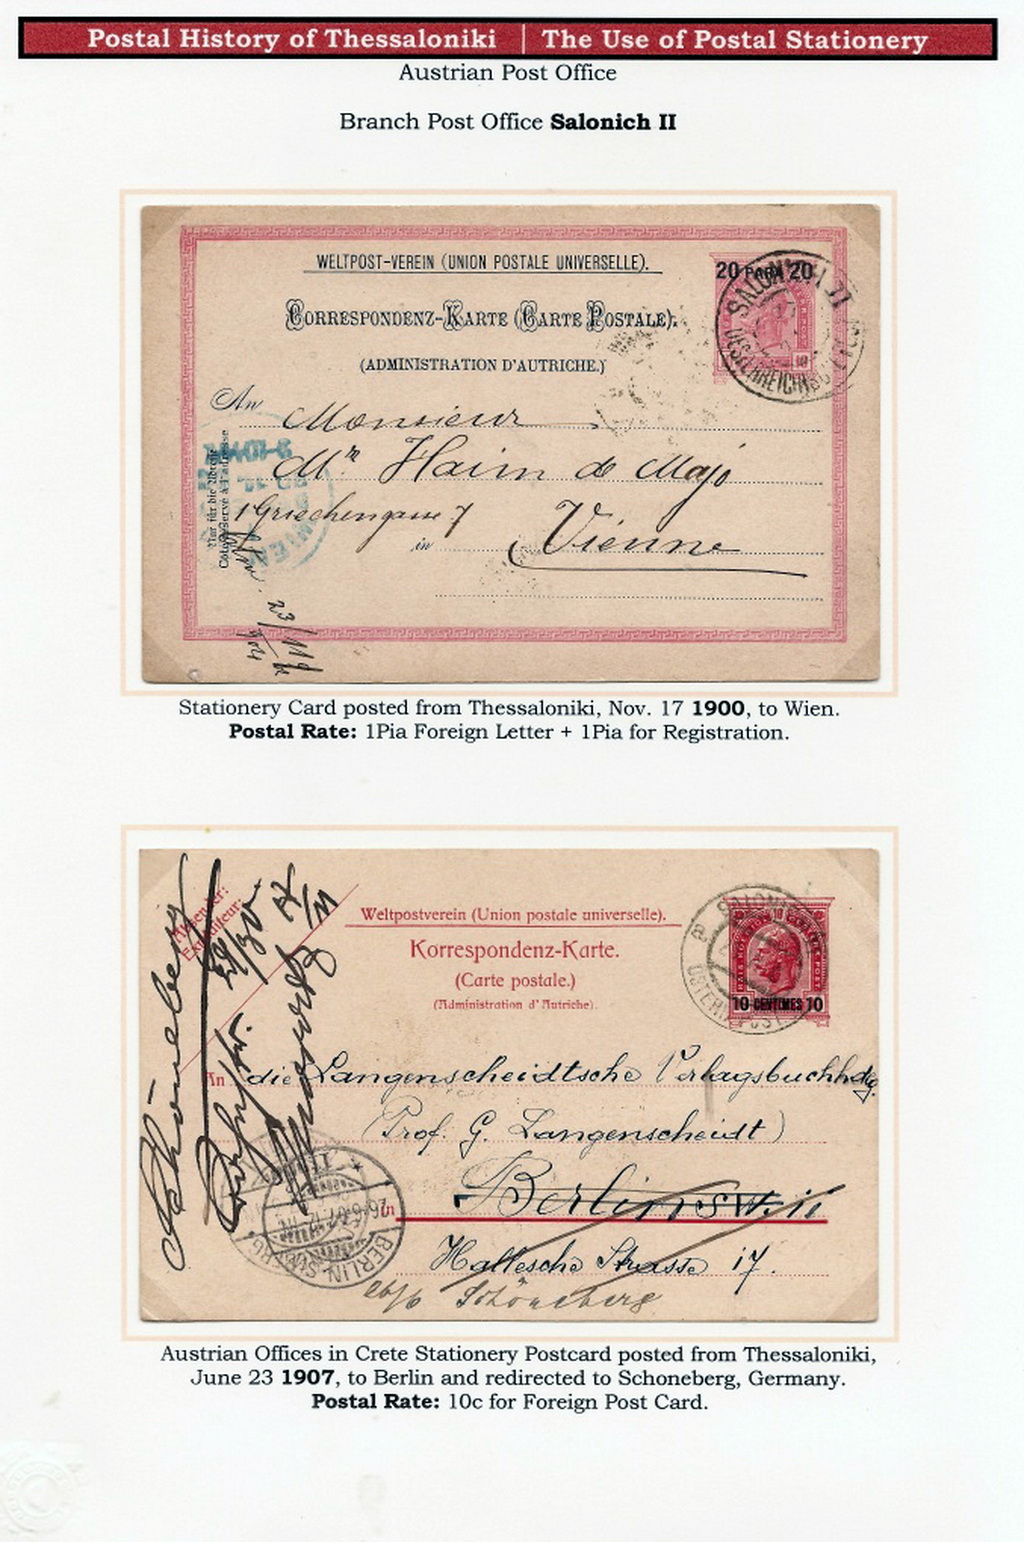 Postal History of Thessaloniki | The Use of Postal Stationery
Austrian Post Office
Branch Post Office Salonich II
WELTPOST-VEREIN (UNION POSTALE UNIVERSELLE).
20 PARA 20
CORRESPONDENZ-KARTE (CARTE POSTALE).
(ADMINISTRATION D'AUTRICHE.)
An Monsieur
Mr Haim de Majo
Griechengasse 7
in Vienne
Nur für die Adresse
Côté réservé à l'adresse
23/11
Stationery Card posted from Thessaloniki, Nov. 17 1900, to Wien.
Postal Rate: 1Pia Foreign Letter + 1Pia for Registration.
Absender:
Expéditeur:
Schöneberg
29/30
Weltpostverein (Union postale universelle).
Korrespondenz-Karte.
(Carte postale.)
(Administration d'Autriche).
10 CENTIMES 10
An die Langenscheidtsche Verlagsbuchhdlg.
(Prof. G. Langenscheidt)
in Berlin SW. 11
Hallesche Strasse 17.
Schöneberg
BERLIN
Austrian Offices in Crete Stationery Postcard posted from Thessaloniki,
June 23 1907, to Berlin and redirected to Schoneberg, Germany.
Postal Rate: 10c for Foreign Post Card.